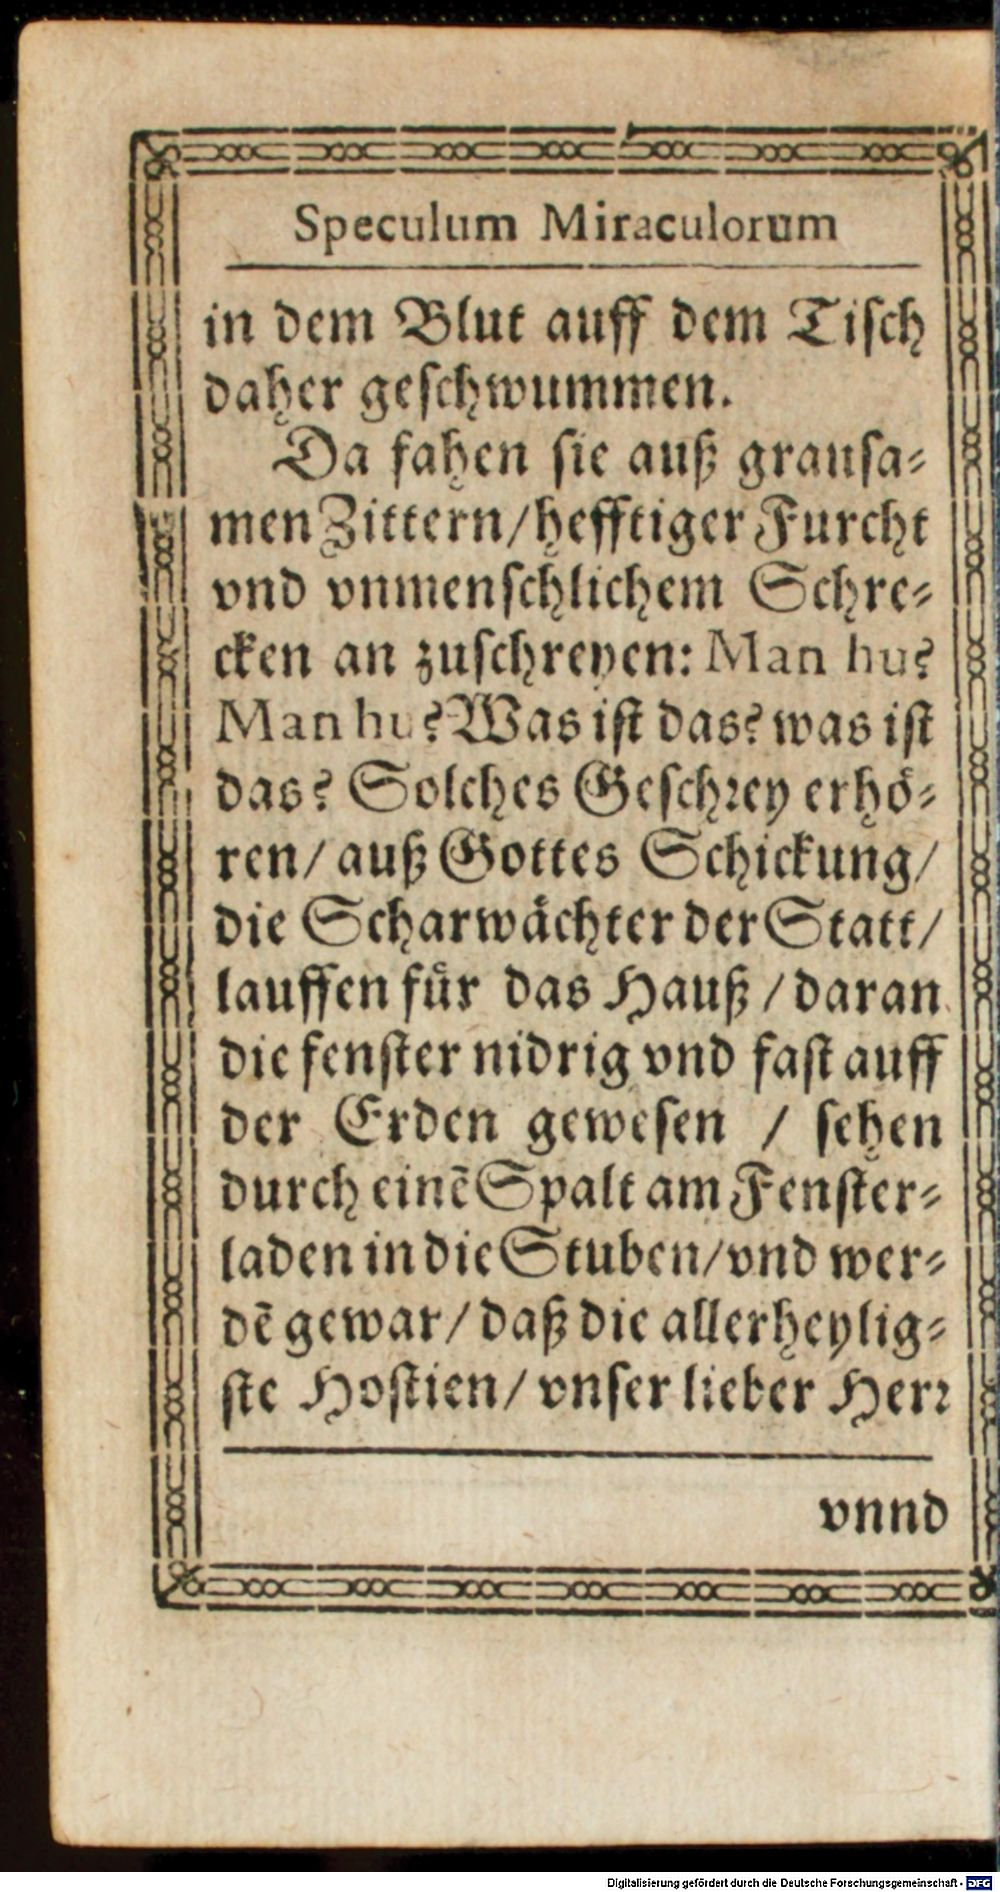 Speculum Miraculorum
in dem Blut auff dem Tiſch
daher geſchwummen.
Da fahen ſie auß grauſa⸗
men Zittern/hefftiger Furcht
vnd vnmenſchlichem Schre⸗
cken an zuſchreyen: Man hu?
Man hu? Was iſt das? was iſt
das? Solches Geſchꝛey erhoͤ⸗
ren/ auß Gottes Schickung/
die Scharwaͤchter der Statt/
lauffen fuͤr das Hauß / daran
die fenſter nidrig vnd faſt auff
der Erden geweſen / ſehen
durch einē Spalt am Fenſter⸗
laden in die Stuben/vnd wer⸗
dē gewar/ daß die allerheylig⸗
ſte Hoſtien/ vnſer lieber Herꝛ
vnnd
Digitalisierung gefördert durch die Deutsche Forschungsgemeinschaft - DFG